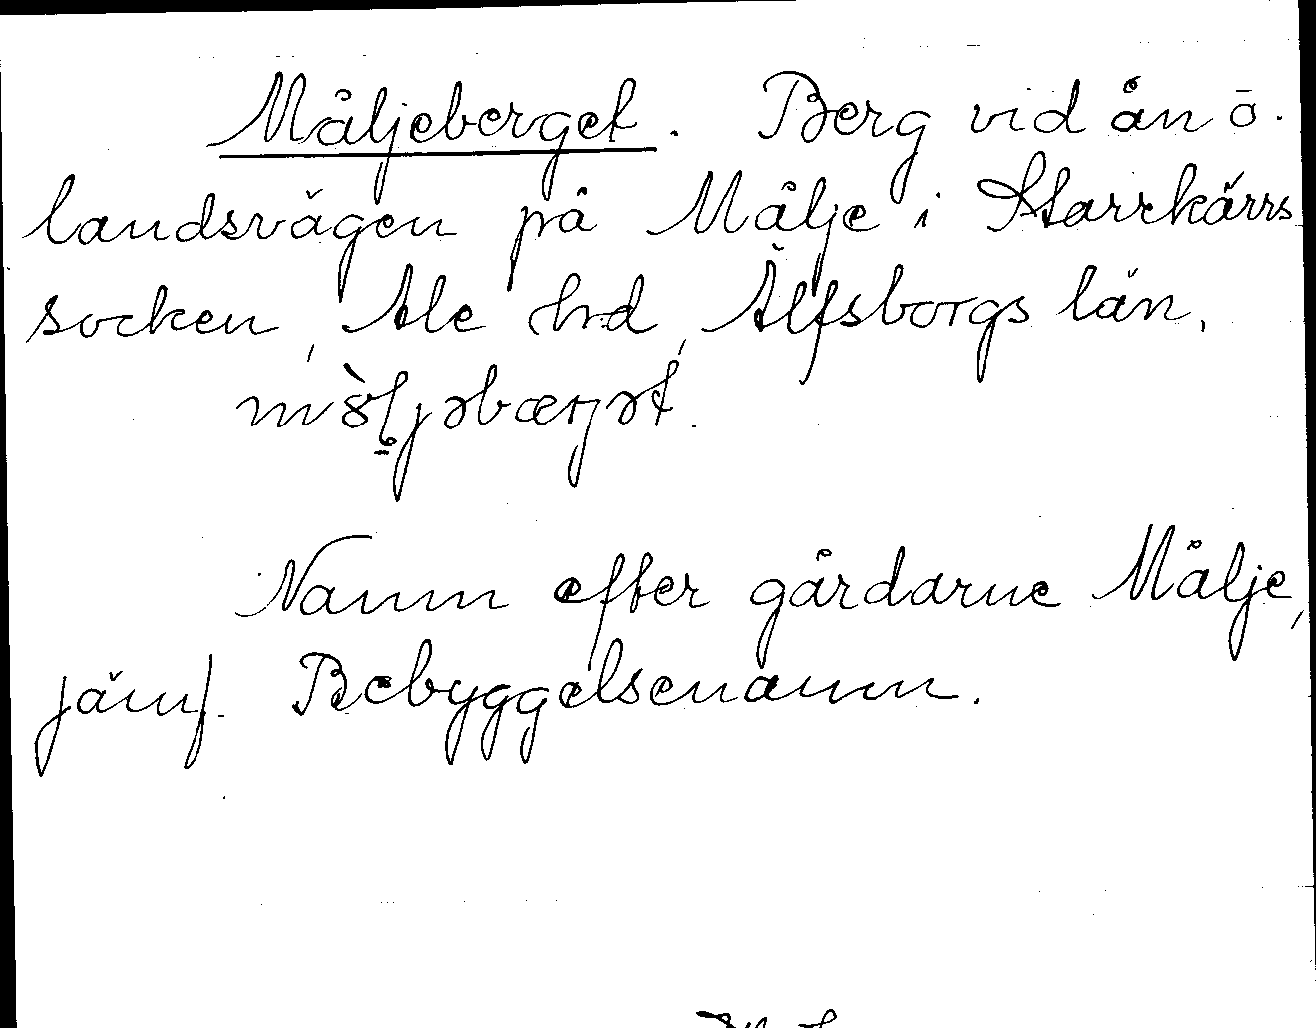 Måljeberget. Berg vid ån ö.
landsvägen på Målje i Starrkärrs
socken, Ale hd, Älfsborgs län.
Namn efter gårdarne Målje,
jämf. Bebyggelsenamn.